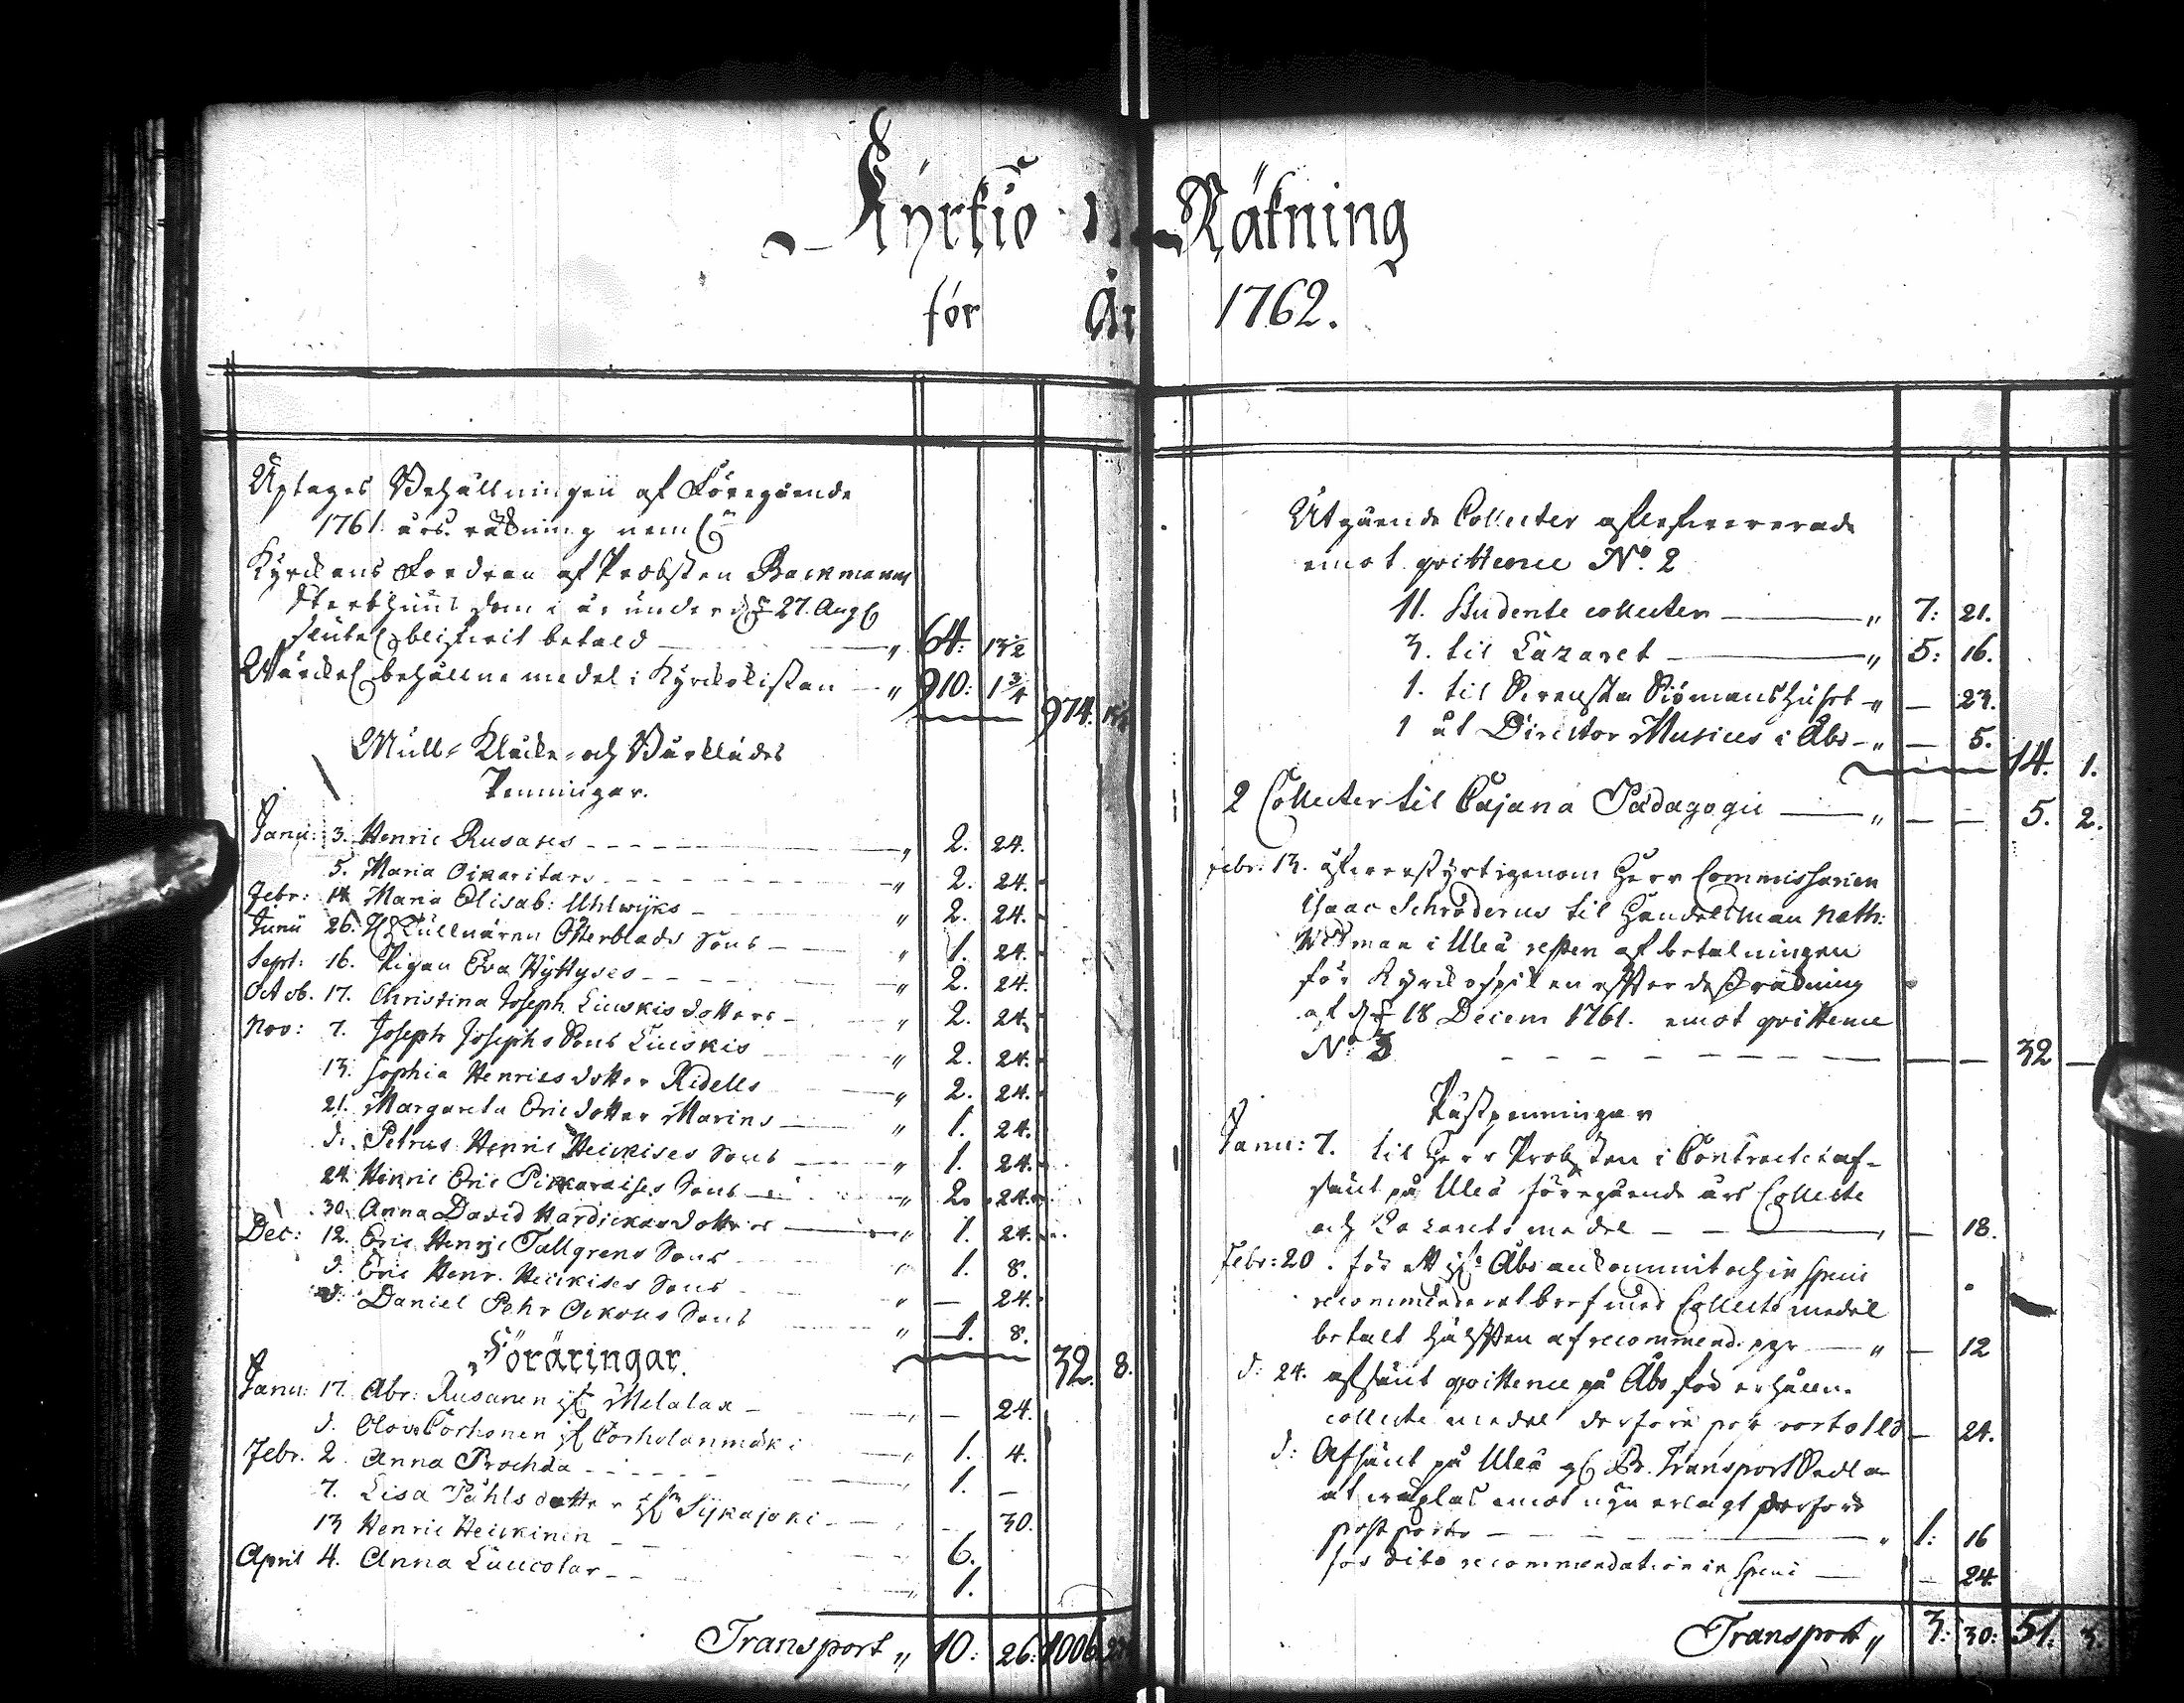 Kyrkio Räkning
för År 1762.
Uptages Behållningen af Föregående
1761 års räkning neml:
Kyrckans Fordran af Probsten Backmans
Sterbhuus som i år under d: 27. Aug:
blifwit betald " 64: 13½
behållne medel i Kyrckokistan " 910: 1¾
974.
Mull- Klåcke- och Bårklädes
Penningar.
Janu: 3. Henric Rusanes " 2. 24.
5. Maria Oikaritars " 2. 24.
Febr: 14 Maria Elisab: Uhlwijks " 2. 24.
Junii 26. Tullnären Österblads Sons " 1. 24.
Sept: 16. Pigan Eva Hyttyses " 2. 24.
Octob. 17. Christina Joseph Liuskis dotters " 2. 24.
Nov: 7. Joseph Josephs Sons Liuskis " 2. 24.
13. Sophia Henrics dotter Ridells " 2. 24.
21. Margareta Ericsdotter Marins " 1. 24.
d. Petrus Henric Heickises Sons " 1. 24.
24. Henric Eric Pikkaraises Sons " 2. 24.
30. Anna David Hardickas dotters " 1. 24.
Dec: 12. Eric Henric Tallgrens Sons " 1. 8.
d. Eric Henr. Heickises Sons " — 24.
d. Daniel Pehr Ockous Sons " 1. 8.
32. 8.
Föräringar.
Janu: 17. Abr: Rusanen Melalax " — 24.
d. Olov Corhonen Corholanmäki " 1. 4.
Febr. 2. Anna Prochda 1. —
7. Lisa Påhls dotter Sijkajoki — 30.
13 Henric Heickinen 6.
April 4. Anna Laucolar 1.
Transport " 10: 26: 1006.
Utgående Collecter aflefwererade
emot qvittence No. 2
11. Studente collecter " 7: 21.
3. til Lazaret " 5: 16.
1. til Svenska Siömanshuset " — 23.
1 åt Director Musices i Åbo " — 5.
14. 1.
2 Collecter til Cajana Pædagogie " — — 5. 2.
Febr: 13. öfwerstyrt igenom Herr Commissarien
Isaac Schröderus til Handelsman Nath:
i Uleå resten af betalningen
för Kyrckospiken efter dess räkning
af d: 18 Decem 1761. emot qvittence
No. 3 — — 32 —
Påstpenningar
Janu: 7. til Herr Probsten i Contractet af-
sänt på Uleå föregående års Collecte
och Lazaretsmedel — 18.
Febr: 20. för ett Åbo ankommit och in
recommenderat bref med Collecte medel
betalt hälften af recommend: " — 12
d: 24. afsänt qvittence på Åbo för erhålln.
collecte medel derföre post porto — 24.
d: Afsänt på Uleå Transport Sedlar
at emot nya derföre
post porto " 1: 16
för dito recommendation in — 24.
Transport " 3: 30: 51. 3.